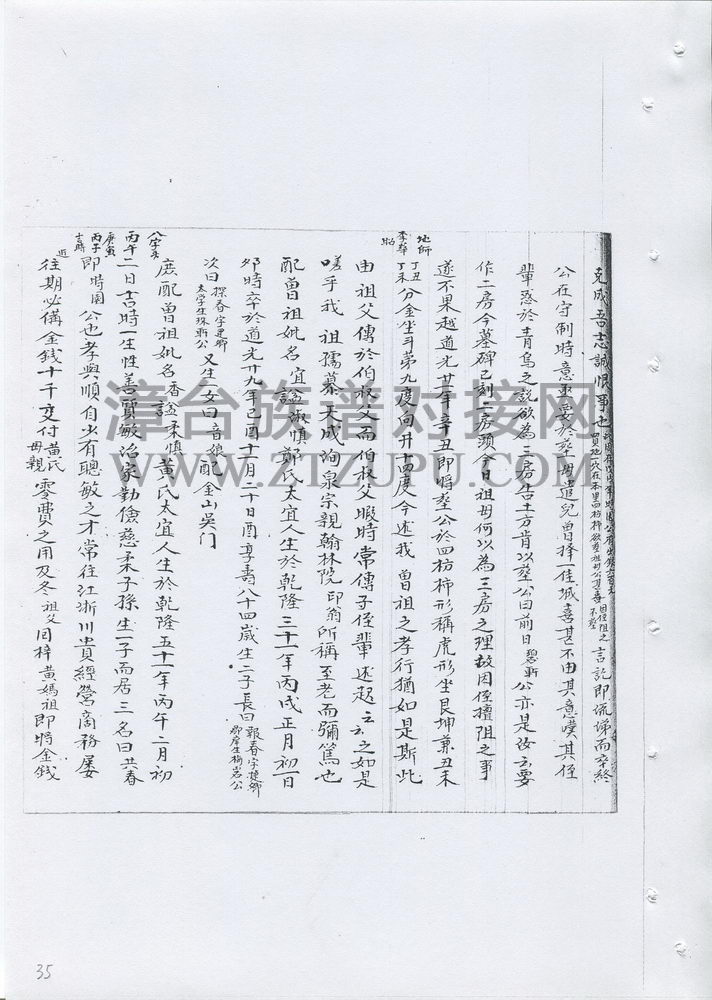 克成吾志誠恨事也 言訖即流涕而卒終
公在守制時意來要於塟母遺兒曾擇一佳城喜甚不由其意嘆其侄
輩惑於青烏之說欲為三房吉土方肯以塟公曰前日 公亦是汝云要
作二房今墓碑已刻二房須今日祖母何以為三房之理故因侄擅阻之事
遂不果越道光廿一年辛丑即將塟公於四枋柿形稱虎形坐艮坤兼丑未
丁丑丁未分金坐斗第九度向井十四度今述我 曾祖之孝行猶如是斯此
地師李華
由祖父傳於伯叔父而伯叔父暇時常傳子侄輩述起云云之如是
嗟乎我 祖孺慕天成洵泉宗親翰林院 印翁所稱至老而彌篤也
配曾祖妣名宜謚淑慎鄭氏太宜人生於乾隆三十一年丙戌正月初一日
卯時卒於道光廿九年己酉十一月二十日酉享壽八十四歲生二子長曰報春字建鄉
郡庠生梅岩公
次曰探春字建鄉太學生珠斬公又生一女曰音娘配金山吳门
庶配曾祖妣名香謚柔慎黃氏太宜人生於乾隆五十一年丙午二月初
八字
丙午
庚寅
丙子
二日吉時一生性善賢敏治家勤儉慈柔子孫生一子而居三名曰共春
即時園公也孝與順自少有聰敏之才常往江浙川貴經營商務屢
往期必備金錢十千交付黃氏母親零費之用及冬祖父回梓黃媽祖即將金錢
漳台族谱对接网
WWW.ZTZUPU.COM
35